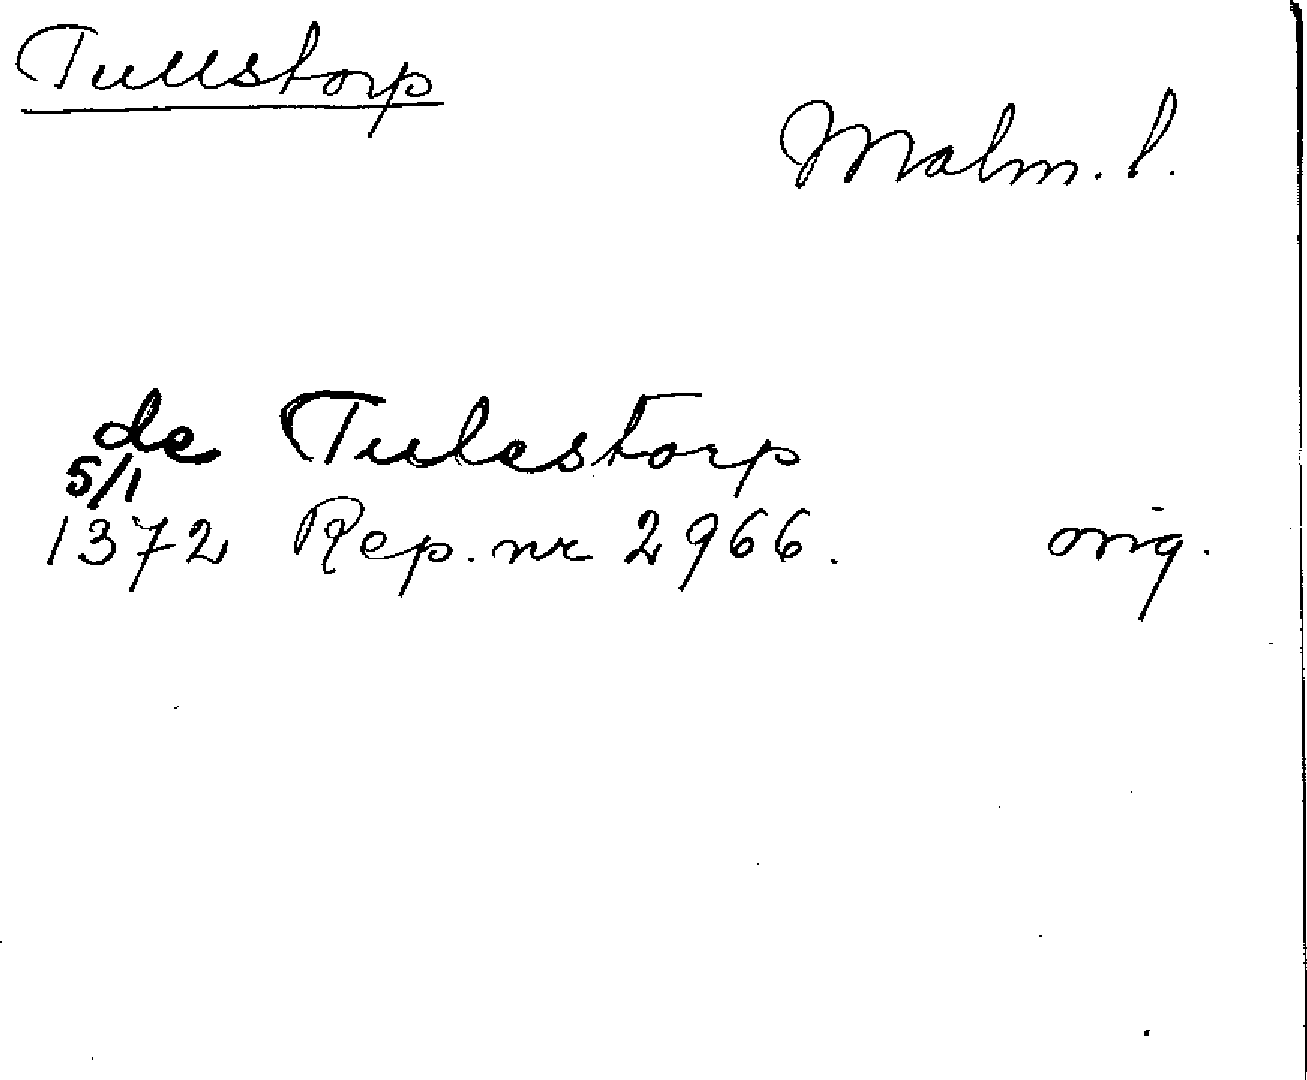 Tullstorp
Malm. l.
de Tulestorp
5/1
1372 Rep. nr 2966. orig.